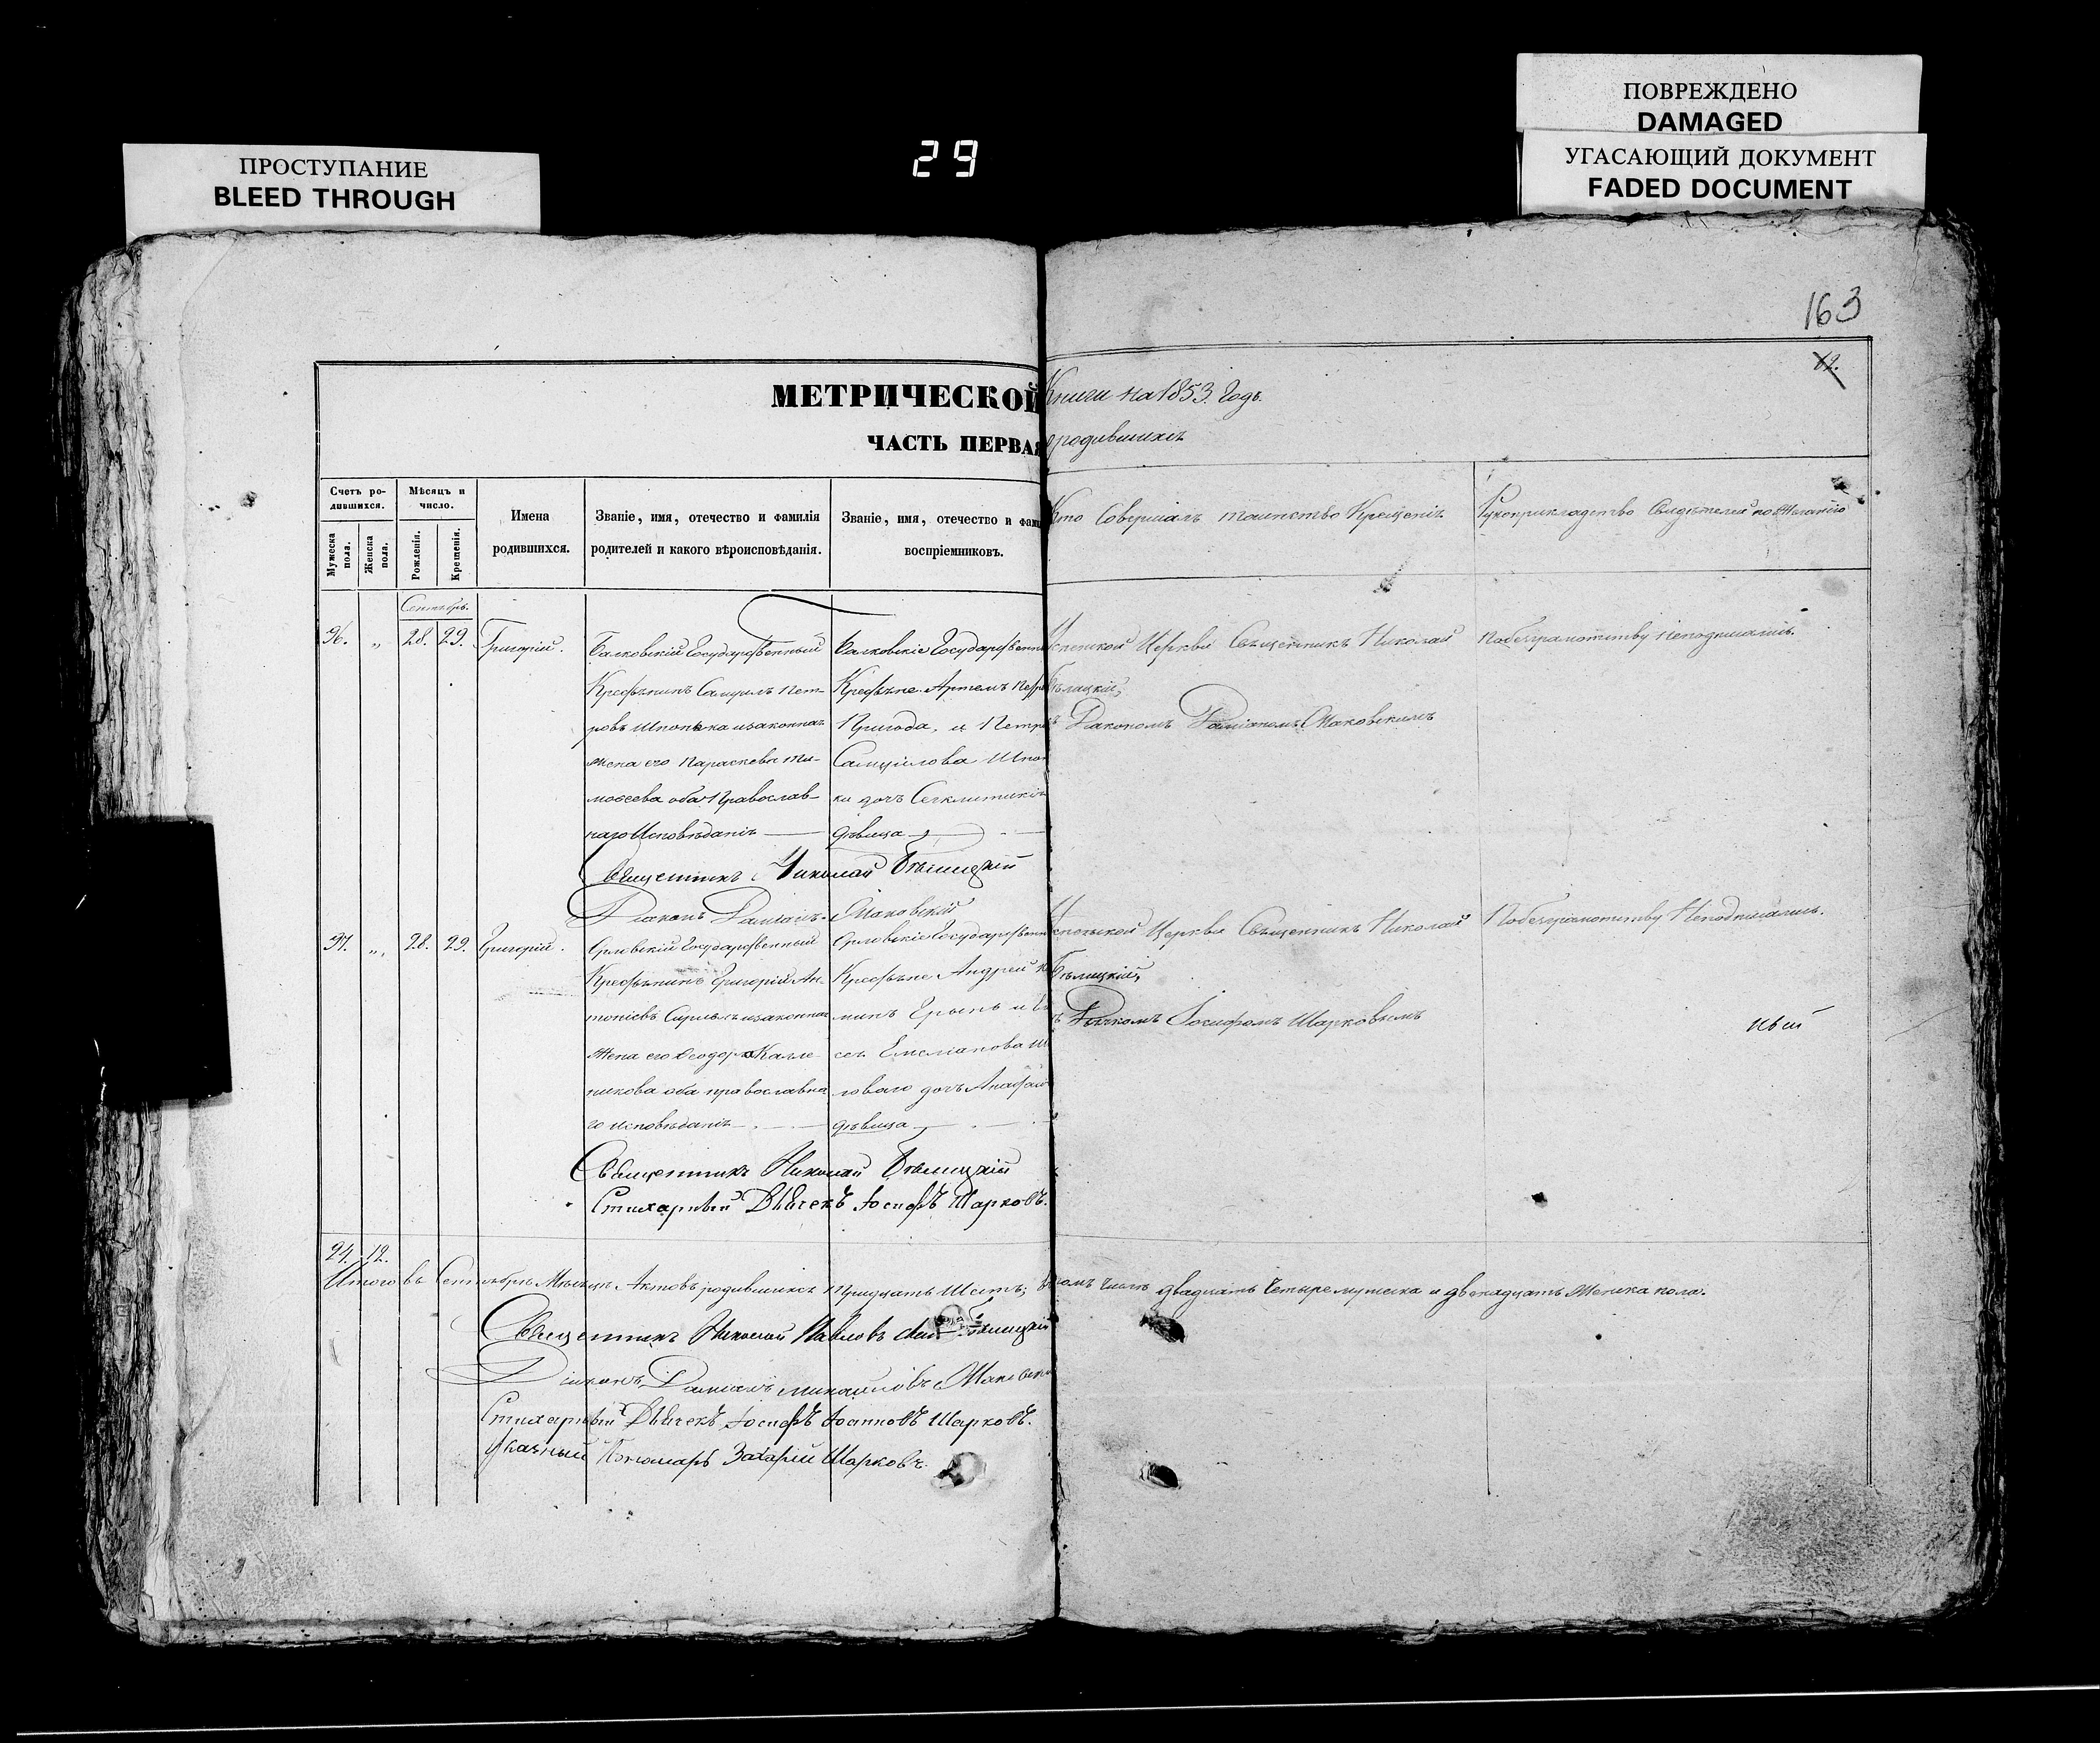 ПОВРЕЖДЕНО
DAMAGED
УГАСАЮЩИЙ ДОКУМЕНТ
FADED DOCUMENT
ПРОСТУПАНИЕ
BLEED THROUGH
29
163
МЕТРИЧЕСКОЙ Книги на 1853. Годъ.
ЧАСТЬ ПЕРВАЯ о родившихся
Счетъ ро-
дившихся.
Мужеска пола.
Женска пола.
Мѣсяцъ и
число.
Рожденія.
Крещенія.
Имена
родившихся.
Званіе, имя, отечество и фамилія
родителей и какого вѣроисповѣданія.
Званіе, имя, отечество и фами
воспріемниковъ.
Кто Совершалъ таинство Крещенія
Рукоприкладство Свидѣтелей по желанію
Сентябрь.
96. „ 28. 29. Григорій.
Валковскій Государственный
Крестьянинъ Самуилъ Пет-
ровъ Шпонька и законная
жена его Параскева Ти-
моѳеева оба Православ-
наго Исповѣданія
Валковскіе Государственн
Крестьяне Артемъ Петр
Пригода, и Петр
Самуилова Шпон
ки дочь Сенклитикія
дѣвица
Успенской Церкви Священникъ Николай
Бѣлицкій,
съ Діакономъ Даміаномъ Маковскимъ
По безграмотству Неподписались.
Священникъ Николай Бѣлицкій
Діаконъ Даміанъ Маковскій
97. „ 28. 29. Григорій.
Орловскій Государственный
Крестьянинъ Григорій Ан-
тоніевъ и законная
Жена его Ѳеодора Калле-
никова оба православна
го исповѣданія
Орловскіе Государственн
Крестьяне Андрей
Емеліанова
дочь
дѣвица
Успенской Церкви Священникъ Николай
Бѣлицкій,
съ Дьячкомъ Іосифомъ Шарковымъ
По безграмотству Неподписались.
Священникъ Николай Бѣлицкій
Стихарный Дьячекъ Іосифъ Шарковъ.
24. 12.
Итого въ Сентябрѣ Мѣсяцѣ Актовъ родившихся тридцать Шесть; въ томъ числѣ двадцать Четыре мужеска и двенадцать Женска пола.
Священникъ Николай Павловъ сынъ Бѣлицкій
Діаконъ Даміанъ Михайловъ Маковскі
Стихарный Дьячекъ Іосифъ Іоанновъ Шарковъ.
Указный Пономарь Захарій Шарковъ.